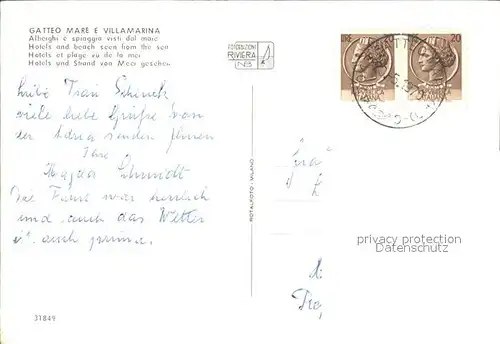 GATTEO MARE E VILLAMARINA
Alberghi e spiaggia visti dal mare
Hotels and beach seen from the sea
Hotels et plage vu de la mer
Hotels und Strand von Meer gesehen
FOTOEDIZIONI
RIVIERA
20
Liebe Frau
viele liebe Grüße von
der Adria senden Ihnen
Ihre
Schmidt
Die Fahrt war herrlich
und auch das Wetter
ist auch prima.
ROTALFOTO - MILANO
privacy protection
samples
31849